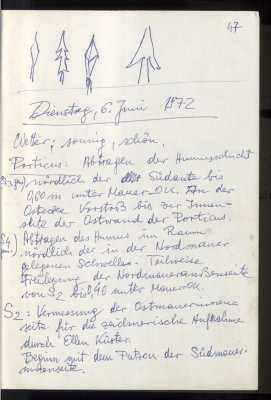 47
Dienstag, 6. Juni 1972
Wetter: sonnig, schön.
Porticus: Abtragen der Humusschicht
nördlich der Südante bis
0,60 m unter Mauer-OK. An der
Ostecke Vorstoß bis zur Innen-
seite der Ostwand der Porticus.
Abtragen des Humus im Raum
nördlich der in der Nordmauer
gelegenen Schwelle. Teilweise
Freilegung der Nordmaueraußenseite
von S2 bis 0,90 unter Mauer-OK.
S2: Vermessung der Ostmauerinnen-
seite für die zeichnerische Aufnahme
durch Ellen Küster.
Beginn mit dem Putzen der Südmauer-
innenseite.